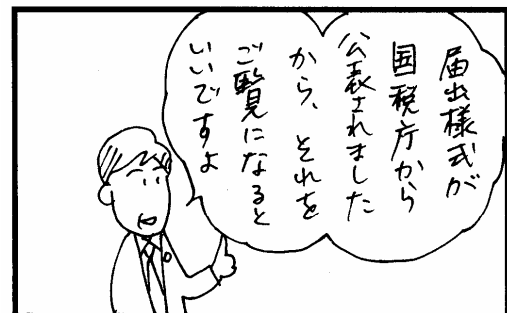 届出様式が
国税庁から
公表されました
から、それを
ご覧になると
いいですよ